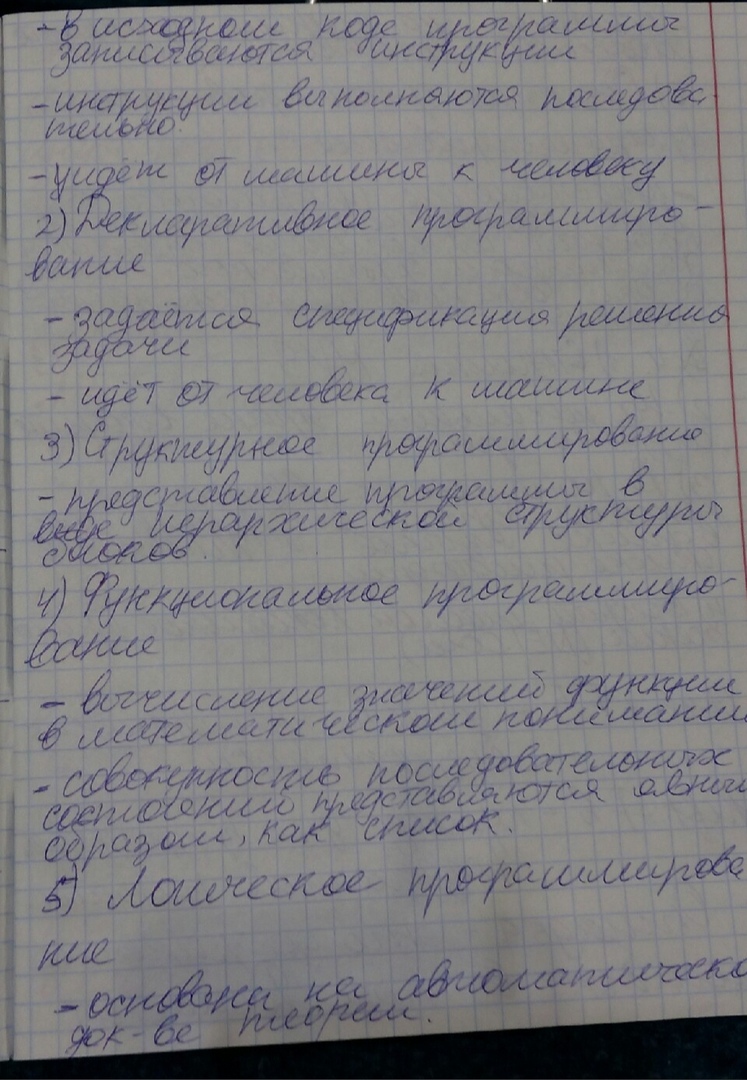 - в исходном коде программы
записываются инструкции
- инструкции выполняются последова-
тельно.
- идёт от машины к человеку
2) Декларативное программиро-
вание
- задаётся спецификация решения
задачи
- идёт от человека к машине
3) Структурное программирование
- представление программы в
виде иерархической структуры
блоков.
4) Функциональное программиро-
вание
- вычисление значений функции
в математическом понимании
- совокупность последовательных
состояний представляются явным
образом, как список.
5) Логическое программирова
ние
- основана на автоматическо
док-ве теорем.